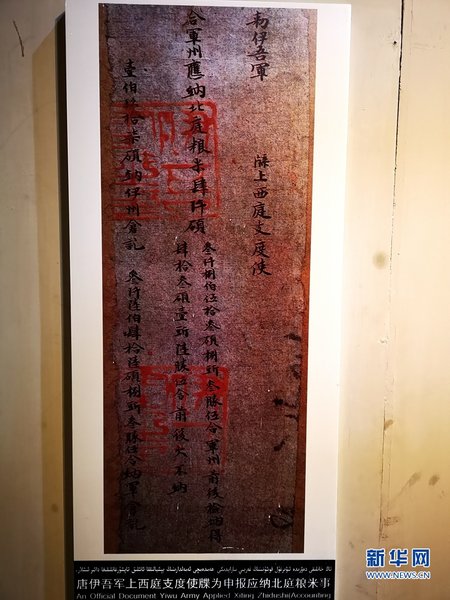 敕伊吾軍
牒上西庭支度使
合軍州應納北庭粮米肆阡碩
叁阡捌伯伍拾叁碩捌㪷叁勝伍合軍州前後檢納得
肆拾叁碩壹㪷陸勝伍合前後欠不納
壹伯玖拾柒碩納伊州倉訖 叁阡陸伯肆拾陸碩捌㪷叁勝伍合納軍倉訖
唐伊吾军上西庭支度使牒为申报应纳北庭粮米事
An Official Document Yiwu Army Applied Xiting Zhidushi(Accounting
新华网
NEWS